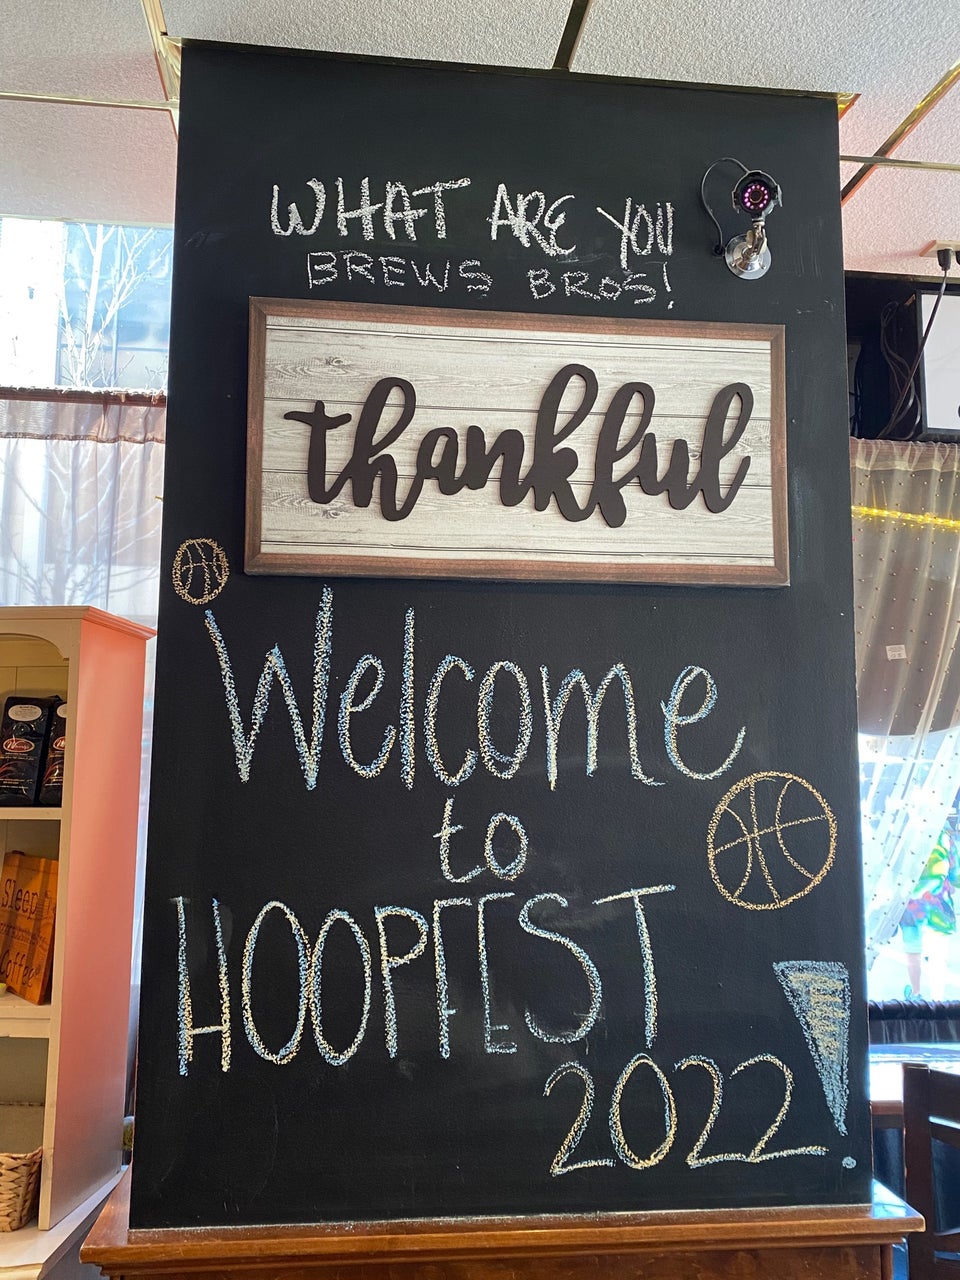 WHAT ARE YOU
BREWS BROS!
thankful
Welcome
to
HOOPFEST
2022!
Sleep
Coffee